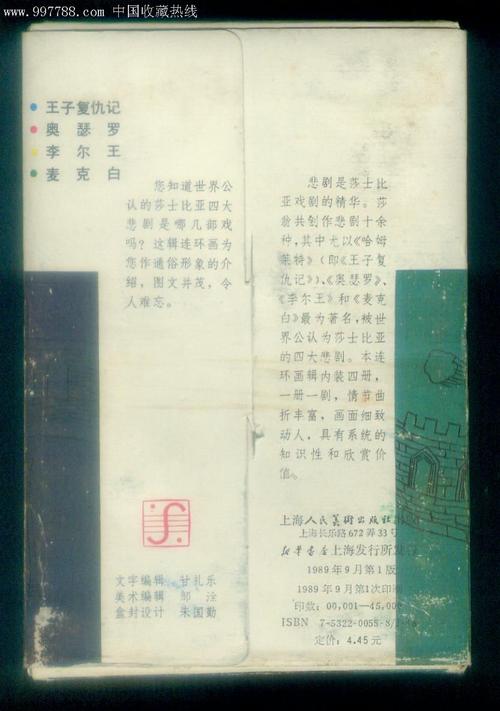 www.997788.com 中国收藏热线
王子复仇记
奥瑟罗
李尔王
麦克白
您知道世界公
认的莎士比亚四大
悲剧是哪几部戏
吗？这辑连环画为
您作通俗形象的介
绍，图文并茂，令
人难忘。
文字编辑 甘礼乐
美术编辑 邹淦
盒封设计 朱国勤
悲剧是莎士比
亚戏剧的精华。莎
翁共创作悲剧十余
种，其中尤以《哈姆
莱特》（即《王子复
仇记》）、《奥瑟罗》、
《李尔王》和《麦克
白》最为著名，被世
界公认为莎士比亚
的四大悲剧。本连
环画辑内装四册，
一册一剧，情节曲
折丰富，画面细致
动人，具有系统的
知识性和欣赏价
值。
上海人民美术出版社
上海长乐路672弄33号
新华书店上海发行所发行
1989年9月第1版
1989年9月第1次印刷
印数：00,001—45,000
ISBN 7-5322-0058-8/J
定价：4.45元